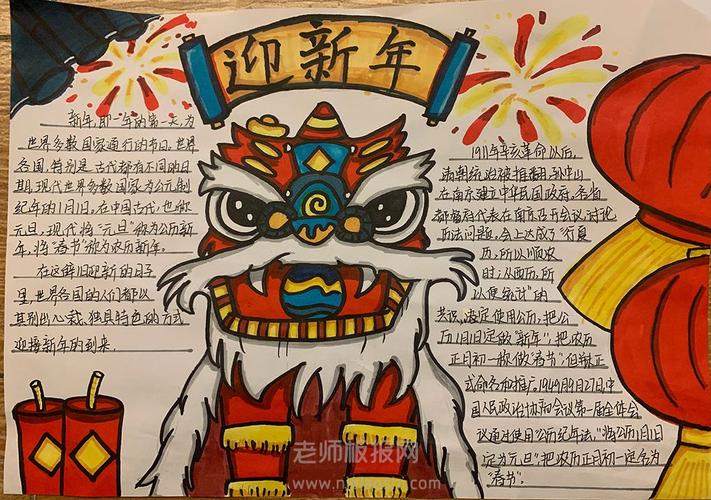 迎新年
新年,即一年的第一天,为
世界多数国家通行的节日。世界
各国,特别是古代都有不同的日
期,现代世界多数国家为公元制
纪年的1月1日。在中国古代,也称
元旦。现代将“元旦”称为公历新
年,将“春节”称为农历新年。
在这辞旧迎新的日子
里,世界各国的人们都以
其别出心裁、独具特色的方式
迎接新年的到来.
1911年辛亥革命以后,
清朝统治被推翻,孙中山
在南京建立中华民国政府。各省
都督府代表在南京召开会议,讨论
历法问题。会上达成了“行夏
历,所以顺农
时;从西历,所
以便统计”的
共识,决定使用公历,把公
历1月1日定做“新年”,把农历
正月初一称做“春节”,但
式命名和推广。1949年9月27日,中
国人民政治协商会议第一届全体会
议通过使用“公历纪年法”,“将公历1月1日
定为元旦”,把农历正月初一定名为
“春节”.
老师板报网